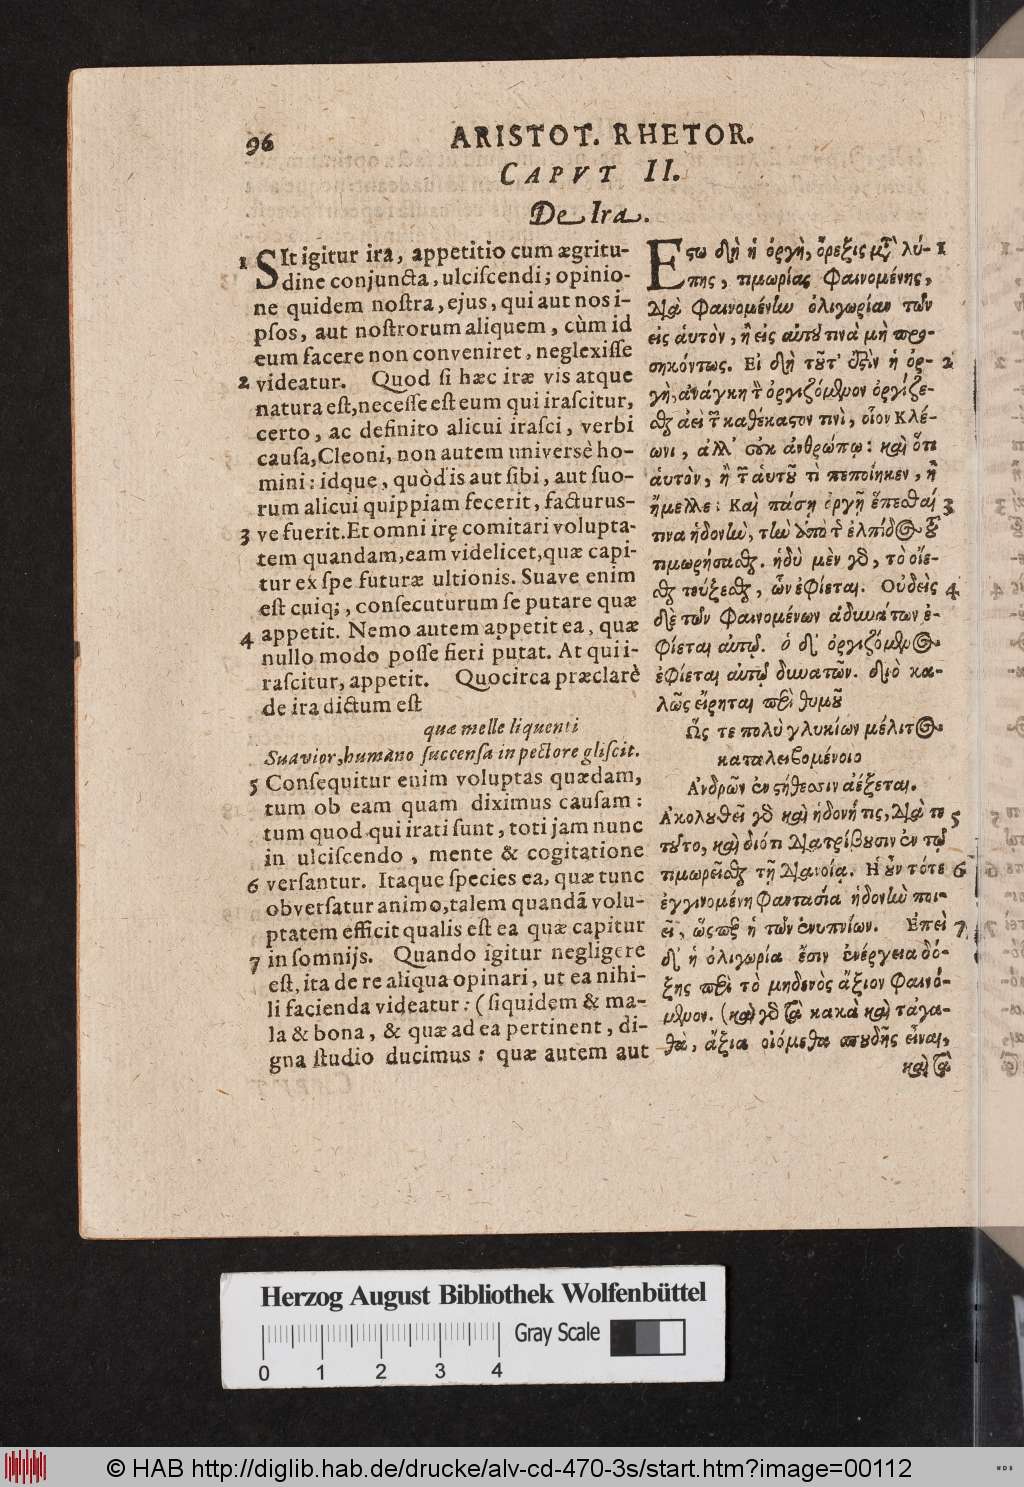 96
ARISTOT. RHETOR.
CAPVT II.
De Ira.
1 SIt igitur ira, appetitio cum ægritu-
dine conjuncta, ulciscendi; opinio-
ne quidem nostra, ejus, qui aut nos i-
psos, aut nostrorum aliquem, cùm id
eum facere non conveniret, neglexisse
2 videatur. Quod si hæc iræ vis atque
natura est, necesse est eum qui irascitur,
certo, ac definito alicui irasci, verbi
causa, Cleoni, non autem universè ho-
mini: idque, quòd is aut sibi, aut suo-
rum alicui quippiam fecerit, facturus-
3 ve fuerit. Et omni irę comitari volupta-
tem quandam, eam videlicet, quæ capi-
tur ex spe futuræ ultionis. Suave enim
est cuiq;, consecuturum se putare quæ
4 appetit. Nemo autem appetit ea, quæ
nullo modo posse fieri putat. At qui i-
rascitur, appetit. Quocirca præclarè
de ira dictum est
quæ melle liquenti
Suavior, humano succensa in pectore gliscit.
5 Consequitur enim voluptas quædam,
tum ob eam quam diximus causam:
tum quod qui irati sunt, toti jam nunc
in ulciscendo, mente & cogitatione
6 versantur. Itaque species ea, quæ tunc
obversatur animo, talem quandã volu-
ptatem efficit qualis est ea quæ capitur
7 in somnijs. Quando igitur negligere
est, ita de re aliqua opinari, ut ea nihi-
li facienda videatur: (siquidem & ma-
la & bona, & quæ ad ea pertinent, di-
gna studio ducimus: quæ autem aut
Εστω δὴ ἡ ὀργὴ, ὄρεξις μετὰ λύ- 1
πης, τιμωρίας φαινομένης,
διὰ φαινομένην ὀλιγωρίαν τῶν
εἰς ἁυτὸν, ἢ εἰς αὐτοῦ τινὰ μὴ προ-
σηκόντως. Εἰ δὴ τοῦτ' ἐστὶν ἡ ὀρ- 2
γὴ, ἀνάγκη τὸ ὀργιζόμενον ὀργίζε-
σθαι ἀεὶ τῶν καθέκαστον τινὶ, οἷον Κλέ-
ωνι, ἀλλ' οὐκ ἀνθρώπῳ: καὶ ὅτι
ἁυτὸν, ἢ τῶν ἁυτοῦ τὶ πεποίηκεν, ἢ
ἤμελλε: Καὶ πάσῃ ὀργῇ ἕπεσθαί 3
τινα ἡδονὴν, τὴν ἀπὸ τῆς ἐλπίδος τοῦ
τιμωρήσασθαι. ἡδὺ μὲν γὸ, τὸ οἴε-
σθαι τεύξεσθαι, ὧν ἐφίεται. Οὐδεὶς 4
δὲ τῶν φαινομένων ἀδυνάτων ἐ-
φίεται αὐτῷ. ὁ δ' ὀργιζόμενος
ἐφίεται αὐτῷ δυνατῶν. διὸ κα-
λῶς εἴρηται περὶ θυμοῦ
Ὥς τε πολὺ γλυκίων μέλιτος
καταλειβομένοιο
Ἀνδρῶν ἐν στήθεσσιν ἀέξεται.
Ἀκολουθεῖ γὸ καὶ ἡδονή τις, διὰ τε 5
τοῦτο, καὶ διότι διατρίβουσιν ἐν τῷ
τιμωρεῖσθαι τῇ διανοίᾳ. Ἡ οὖν τότε 6
ἐγγινομένη φαντασία ἡδονὴν ποι-
εῖ, ὥσπερ ἡ τῶν ἐνυπνίων. Ἐπεὶ 7
δ' ἡ ὀλιγωρία ἔστιν ἐνέργεια δό-
ξης περὶ τὸ μηδενὸς ἄξιον φαινό-
μενον. (καὶ γὸ τὰ κακὰ καὶ τἀγα-
θὰ, ἄξια οἰόμεθα σπουδῆς εἶναι,
καὶ τὰ
Herzog August Bibliothek Wolfenbüttel
Gray Scale
0 1 2 3 4
© HAB http://diglib.hab.de/drucke/alv-cd-470-3s/start.htm?image=00112